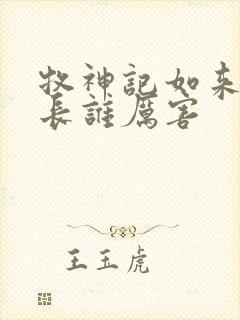 牧神記如来
長誰厲害
王玉虎